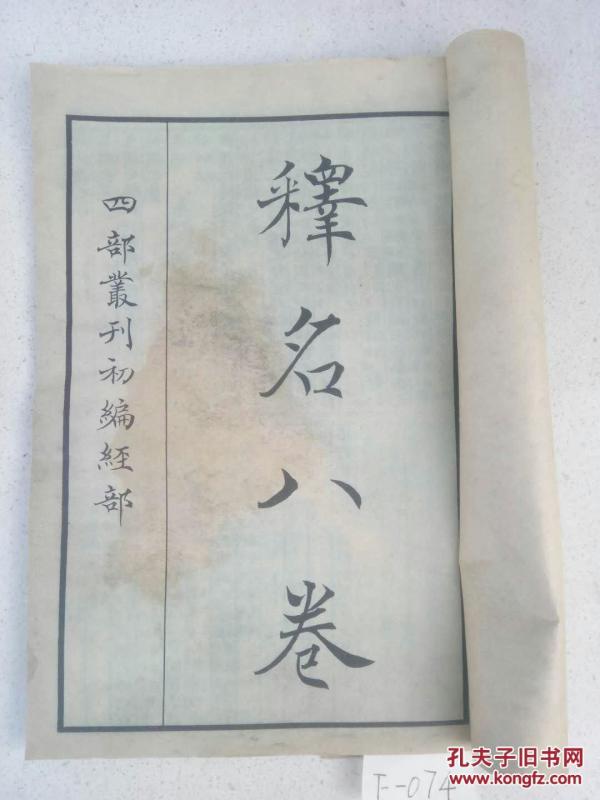 釋名八卷
四部叢刊初編經部
F-074
孔夫子旧书网
www.kongfz.com